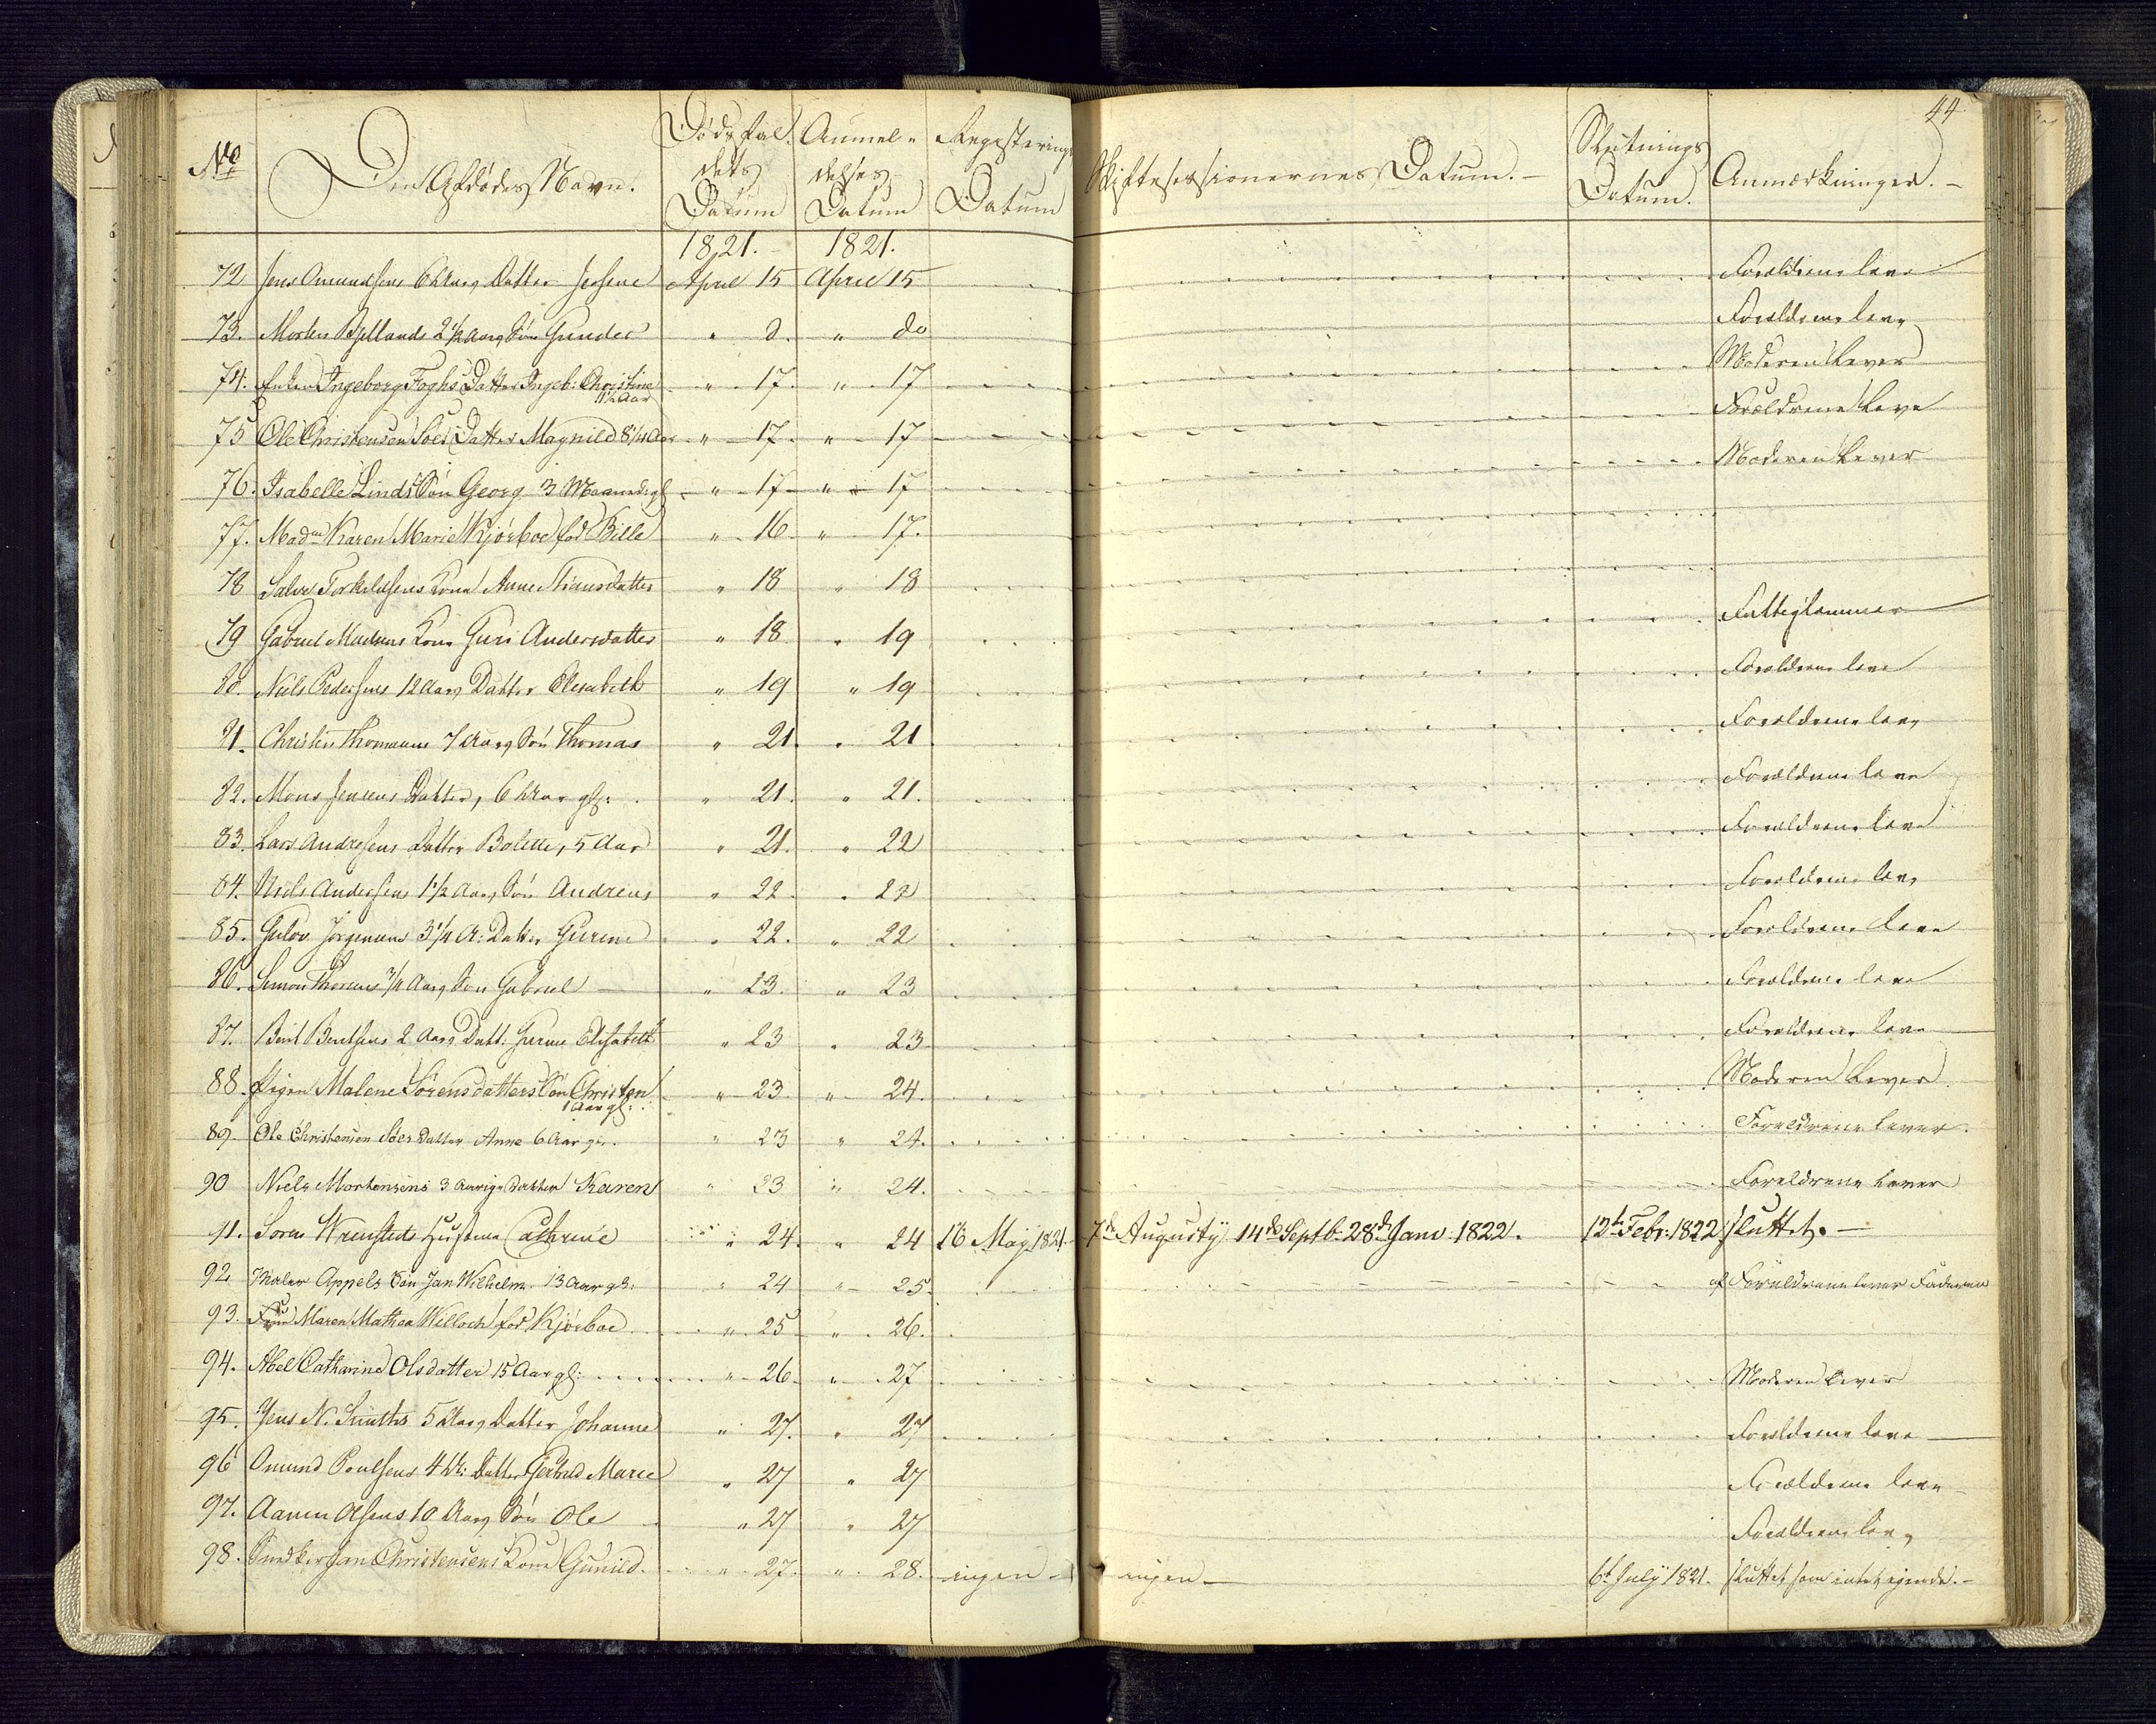 44
No Den Afdødes Navn. Dødsfal- dets Datum Anmel- delses- Datum Registerings Datum Skiftesessionernes Datum.- Slutnings Datum. Anmærkninger.-
1821.- 1821.
72 Jens Omundsens 6 Aarg Datter April 15 April 15 Forældrene leve
73. Morten Bjellands 2 1/2 Aarg Søn Gunder " d. " do Forældrene leve
74. Enken Ingeborg Foghs Datter Ingeb: Christine " 17. " 17 Moderen lever
1 1/2 Aar
75 Ole Christensen Søes Datter Magnild 8 1/4 Aar " 17. " 17 Forældrene leve
76. Isabelle Linds Søn Georg 3 Maaneder gl " 17 " 17 Moderen lever
77. Madme Karen Marie Kjørboe fød Bille " 16 " 17.
78 Salve Torkildsens Kone Anne Hansdatter " 18 " 18
79 Gabriel Madsens Kone Guri Andersdatter " 18 " 19 Fattiglemmer
80. Niels Pedersens 12 Aarg Datter Elisabeth " 19 " 19 Forældrene leve
81. Christen Thomasens 7 Aarg Søn Thomas " 21 " 21 Forældrene leve
82. Mons Jensens Datter, 6 Aar gl: " 21. " 21. Forældrene leve
83. Lars Andresens Datter Bolette, 5 Aar " 21. " 22 Forældrene leve
84. Niels Andersens 1 1/2 Aarg Søn Andreas " 22. " 22 Forældrene leve
85. Gulov Jørgensens 3 1/4 A: Datter Gurine " 22. " 22 Forældrene leve
86. Simon Thorsens 3/4 Aarg Søn Gabriel " 23. " 23 Forældrene leve
87. Bent Bentsens 2 Aarg Datt: Gurine Elisabeth " 23 " 23 Forældrene leve
88. Pigen Malene Sørensdatters Søn Christen " 23. " 24. Moderen lever
1 Aar gl:
89. Ole Christensen Søes Datter Anne 6 Aar gl. " 23 " 24. Forældrene lever.
90 Niels Mortensens 3 Aarige Datter Karen " 23 " 24. Forældrene lever
91. Søren Wrensteds Hustrue Cathrine " 24. " 24 16 May 1821. 7de Augusty 14de Septb: 28de Janv: 1822. 12te Febr: 1822 sluttet.-
92 Maler Appels Søn Jan Wilhelm 13 Aar gl: " 24 " 25. Forældrene lever Faderen
93. Frue Maren Mathea Willoch fød Kjørboe " 25 " 26.
94. Abel Catharine Olsdatter 15 Aar gl: " 26. " 27 Moderen lever
95. Jens N. Smiths 5 Aarg Datter Johanne " 27. " 27 Forældrene leve
96 Omund Poulsens 4 Datter Gertrud Marie " 27 " 27 Forældrene leve
97. Aanen Olsens 10 Aarg Søn Ole " 27 " 27 Forældrene leve
98. Snedker Jan Christensens Kone Gunild. " 27. " 28. ingen ingen 6t July 1821. sluttet som intet eiende.-